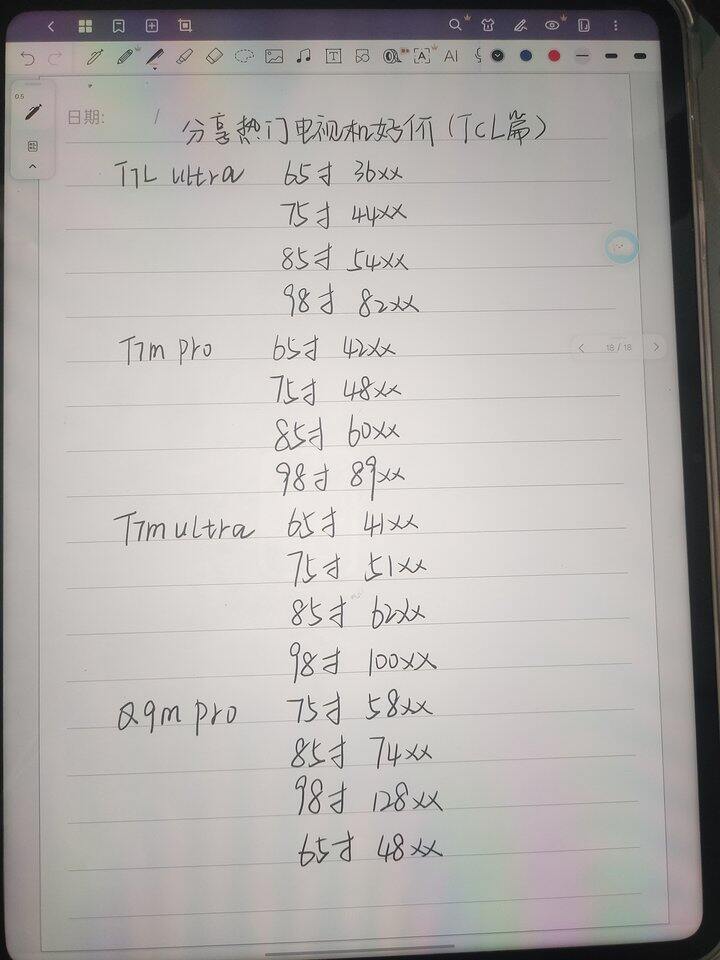 0.5
日期: /
分享热门电视机好价(TCL篇)
T7L ultra 65寸 36xx
75寸 44xx
85寸 54xx
98寸 82xx
T7m pro 65寸 42xx
18/18
75寸 48xx
85寸 60xx
98寸 89xx
T7m ultra 65寸 41xx
75寸 51xx
85寸 62xx
98寸 100xx
Q9m pro 75寸 58xx
85寸 74xx
98寸 128xx
65寸 48xx